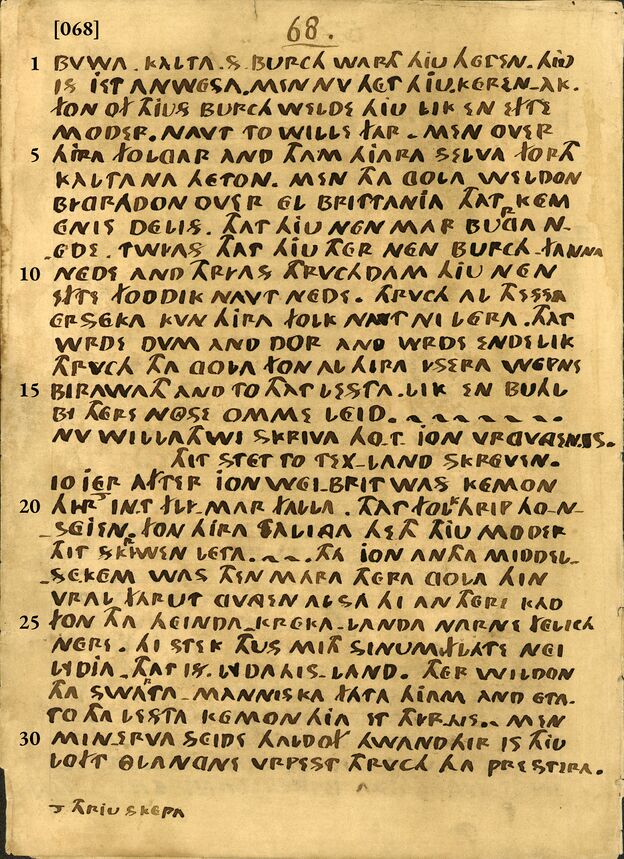 [068]
68.
1 BVWA. KALTA.S. BURCH WARTH HIU HETEN. HIU
IS IST ANWESA. MEN NV HET HIU. KEREN-AK.
FON OF THIUS BURCH WELDE HIU LIK EN EFTE
MODER. NAVT TO WILLE FAR. MEN OVER
5 HIRA FOLGAR AND THAM HIARA SELVA FORTH
KALTANA HETON. MEN THA GOLA WELDON
BIGRADON OVER EL BRITTANIA THAT KEM
ENIS DELIS. THAT HIU NEN MAR BURGA N-
EDE. TWIAS THAT HIU THER NEN BURCH-FAMNA
10 NEDE AND THRIAS THRUCHDAM HIU NEN
EFTE FODDIK NAVT NEDE. THRVCH AL THESSA
ERSEKA KUN HIRA FOLK NAVT NI LERA. THAT
WRDE DVM AND DOR AND WRDE ENDELIK
THRVCH THA GOLA FON AL HIRA YSERA WEPNE
15 BIRAWATH AND TO THAT LESTA. LIK EN BUHL
BI THERE NOSE OMME LEID.
NV WILLATH WI SKRIVA HO.T ION VRGVNGEN.IS.
THIT STET TO TEX-LAND SKREVEN.
10 IER AFTER ION WEI-BRIT WAS KEMON
20 HYR INT FLY-MAR FALLA. THAT FOLK HRIP HO-N-
-SEIEN. FON HIRA THALIGA HETH THIU MODER
THIT SKRIWEN LETA. THA ION ANTHA MIDDEL-
-SEKEM WAS THEN MARA THERA GOLA HIN
VRAL FARUT GVNGEN ALSA HI AN THERI KAD
25 FON THA HEINDA-KREKA-LANDA NARNE FELICH
NERE. HI STEK THUS MITH SINUM FLATE NEI
LYDIA. THAT IS. LYDAHIS-LAND. THER WILDON
THA SWARTA-MANNISKA FATA HIAM AND ETA.
TO THA LESTA KEMON HIA ET THYRHIS. MEN
30 MINERVA SEIDE HALD OF HWAND HIR IS THIU
LOFT OLANGNE VRPEST THRVCH THA PRESTERA.
THRIU SKEPA